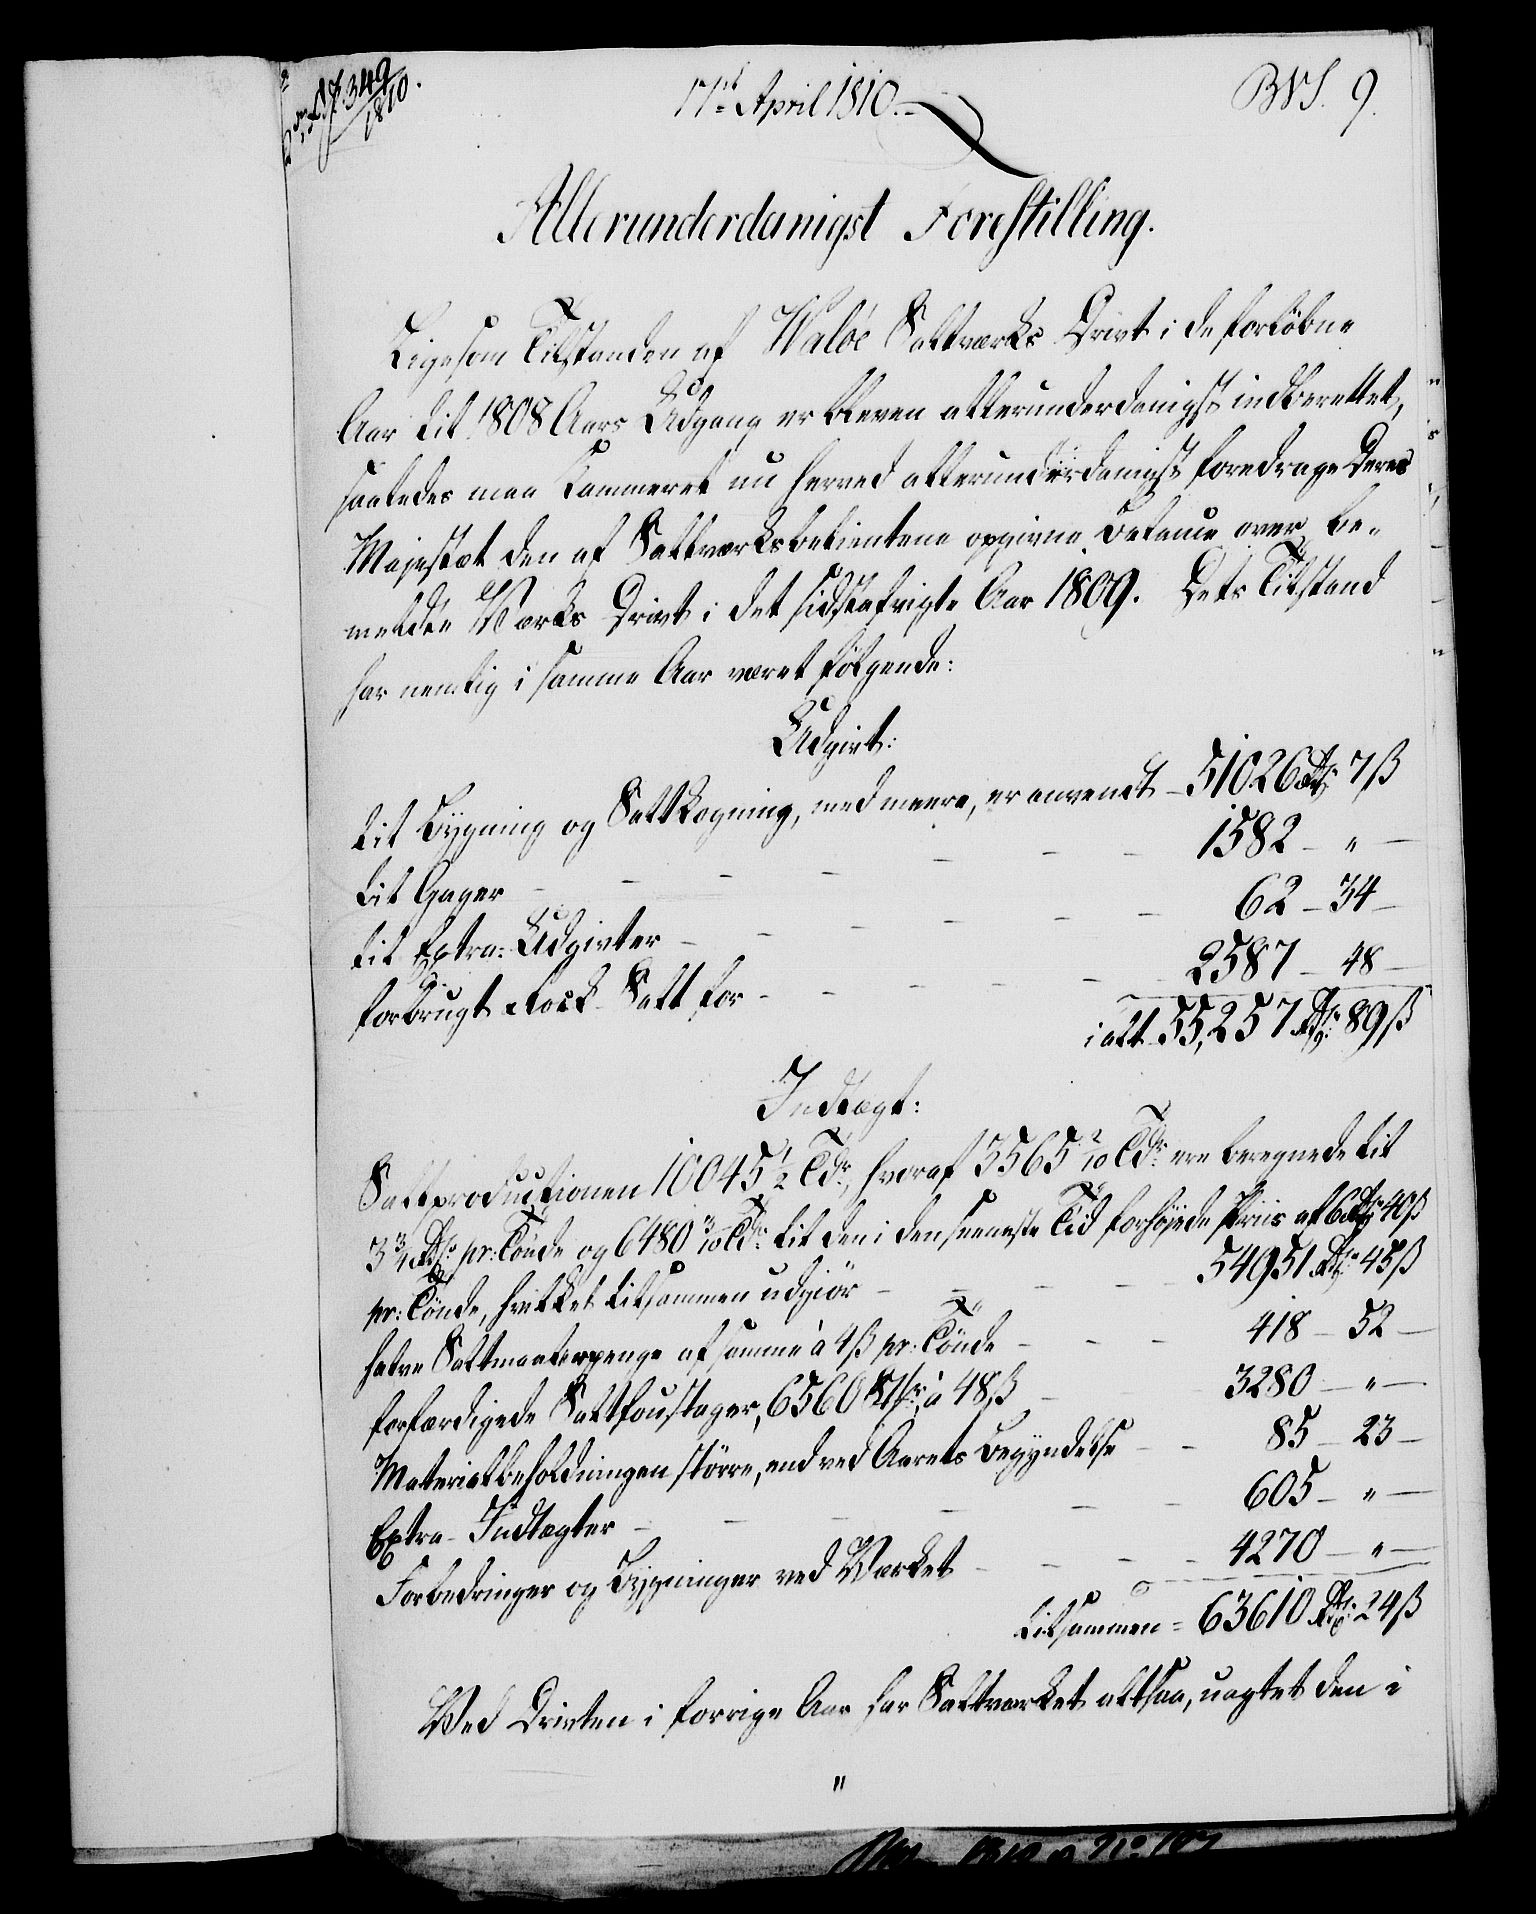 349
1810.
17de April 1810.
BVS. 9.
Allerunderdanigst Forestilling.
Ligesom Tilstanden af Waløe Saltværks Drivt i de forløbne
Aar til 1808 Aars Udgang er bleven allerunderdanigst indberettet,
saaledes maa Kammeret nu herved allerunderdanigst foredrage Deres
Majestæt den af Saltværksbetientene opgivne Balance over be-
meldte Værks Drivt i det sidstafvigte Aar 1809. Dets Tilstand
har nemlig i samme Aar været følgende:
Udgivt:
til Bygning og Saltkogning, med meere, er anvendt - 51026 Rdr. 7 ß
til Gager - - - - - - - 1582 - " -
til Extra-Udgivter - - - - - - 62 - 34 -
forbrugt Rock-Salt for - - - - - 2587 - 48 -
i alt 55,257 Rdr. 89 ß
Indtægt:
Saltproductionen 10045 1/2 Tdr., hvoraf 3565 2/10 Tdr. ere beregnede til
3 3/4 Rdr. pr. Tønde og 6480 3/10 Tdr. til den i den seeneste Tid forhøjede Priis af 6 Rdr. 40 ß
pr. Tønde, hvilket tilsammen udgiør - - - - 54951 Rdr. 45 ß
halve Saltmaalerpenge af samme à 4 ß pr. Tønde - - - 418 - 52 -
forfærdigede Saltfoustager, 6560 Stkr. à 48 ß - 3280 - " -
Materialbeholdningen større, end ved Aarets Begyndelse - - 85 - 23 -
Extra-Indtægter - - - - - - 605 - " -
Forbedringer og Bygninger ved Værket - - - - 4270 - " -
tilsammen = 63610 Rdr. 24 ß
Ved Drivten i forrige Aar har Saltværket altsaa, uagtet den i
"